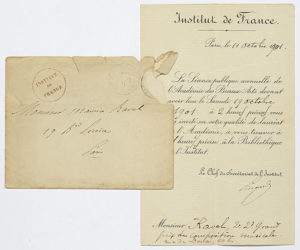 INSTITUT
DE
FRANCE
Monsieur Maurice Ravel
19 Bd Pereire
Paris
Institut de France.
Paris, le 11 Octobre 1901.
La Séance publique annuelle de
l'Académie des Beaux-Arts devant
avoir lieu le Samedi 19 octobre
1901 à 2 heures précises, vous
êtes invité en votre qualité de lauréat
de l'Académie, à vous trouver à
heures précises à la Bibliothèque
de l'Institut.
Le Chef du Secrétariat de l'Institut
Monsieur Ravel, 2d Grand
prix de composition musicale